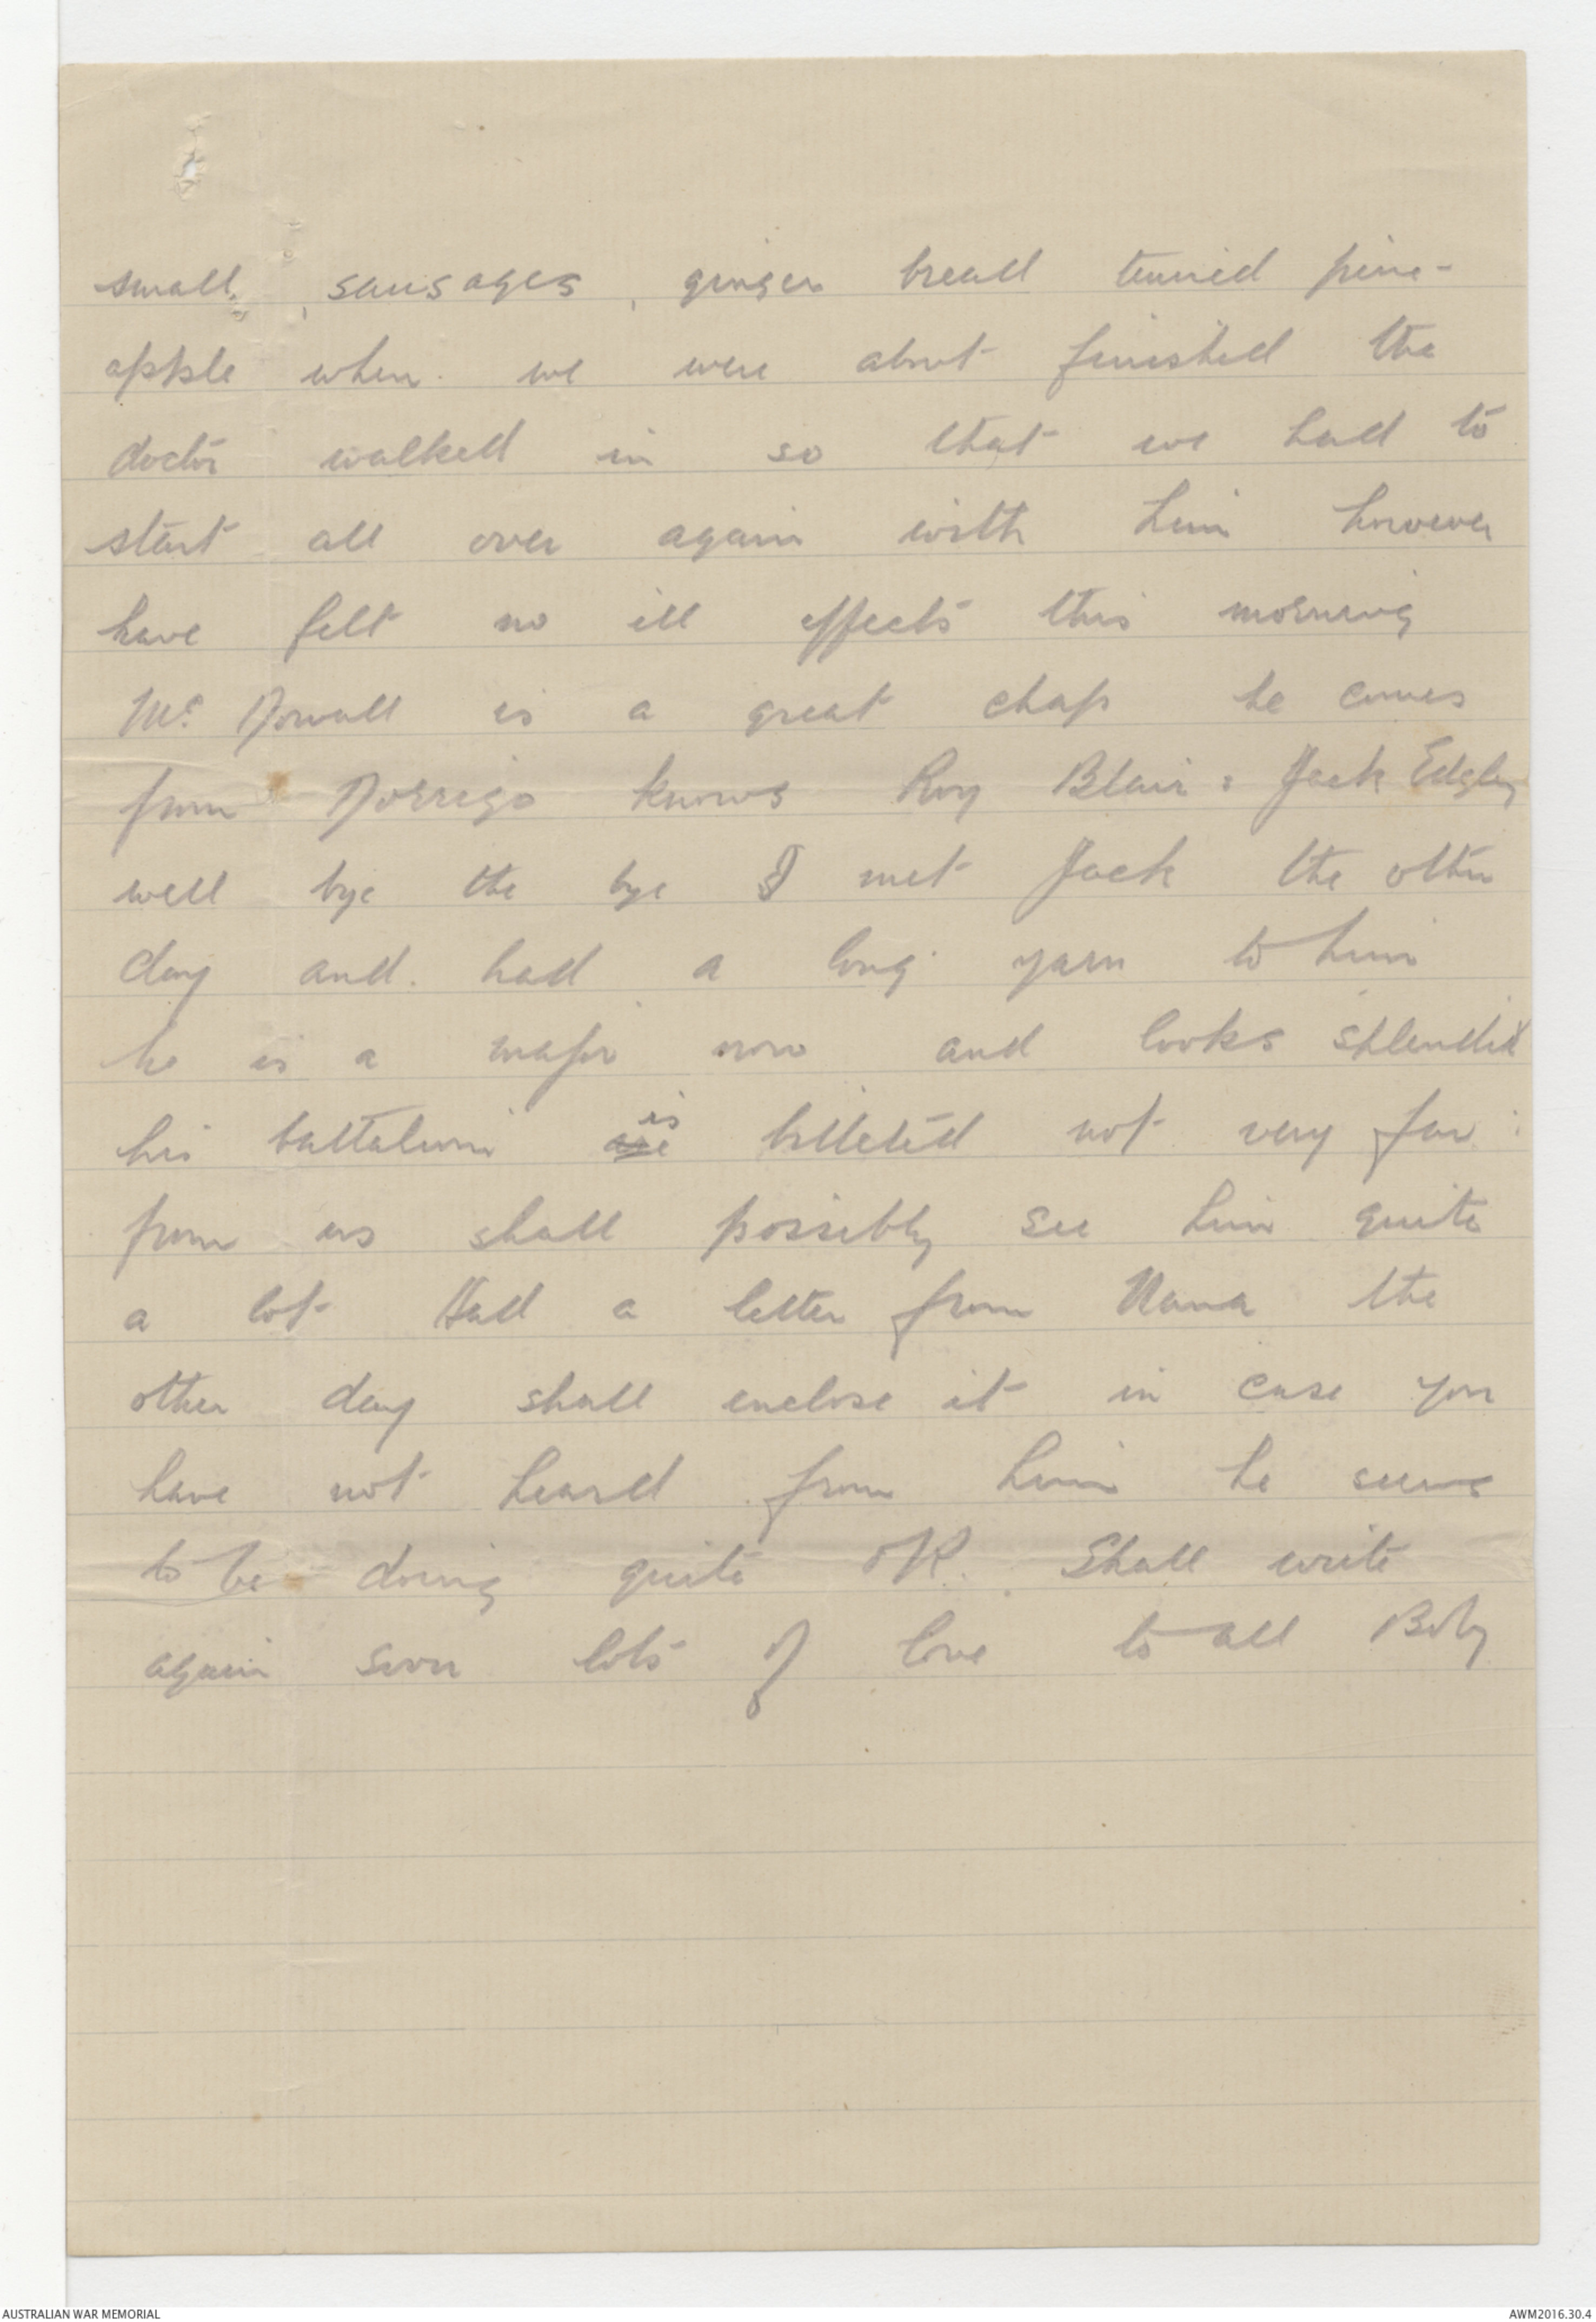 small, sausages, ginger bread tinned pine-
apple when we were about finished the
doctor walked in so that we had to
start all over again with him however
have felt no ill effects this morning
Mc Dowall is a great chap he comes
from Dorrigo knows Roy Blair & Jack
well bye the bye I met Jack the other
day and had a long yarn to him
he is a major now and looks splendid
his battalion are is billeted not very far
from us shall possibly see him quite
a lot Had a letter from the
other day shall enclose it in case you
have not heard from him he seems
to be doing quite OK. Shall write
again soon lots of love to all
AUSTRALIAN WAR MEMORIAL
AWM2016.30.4